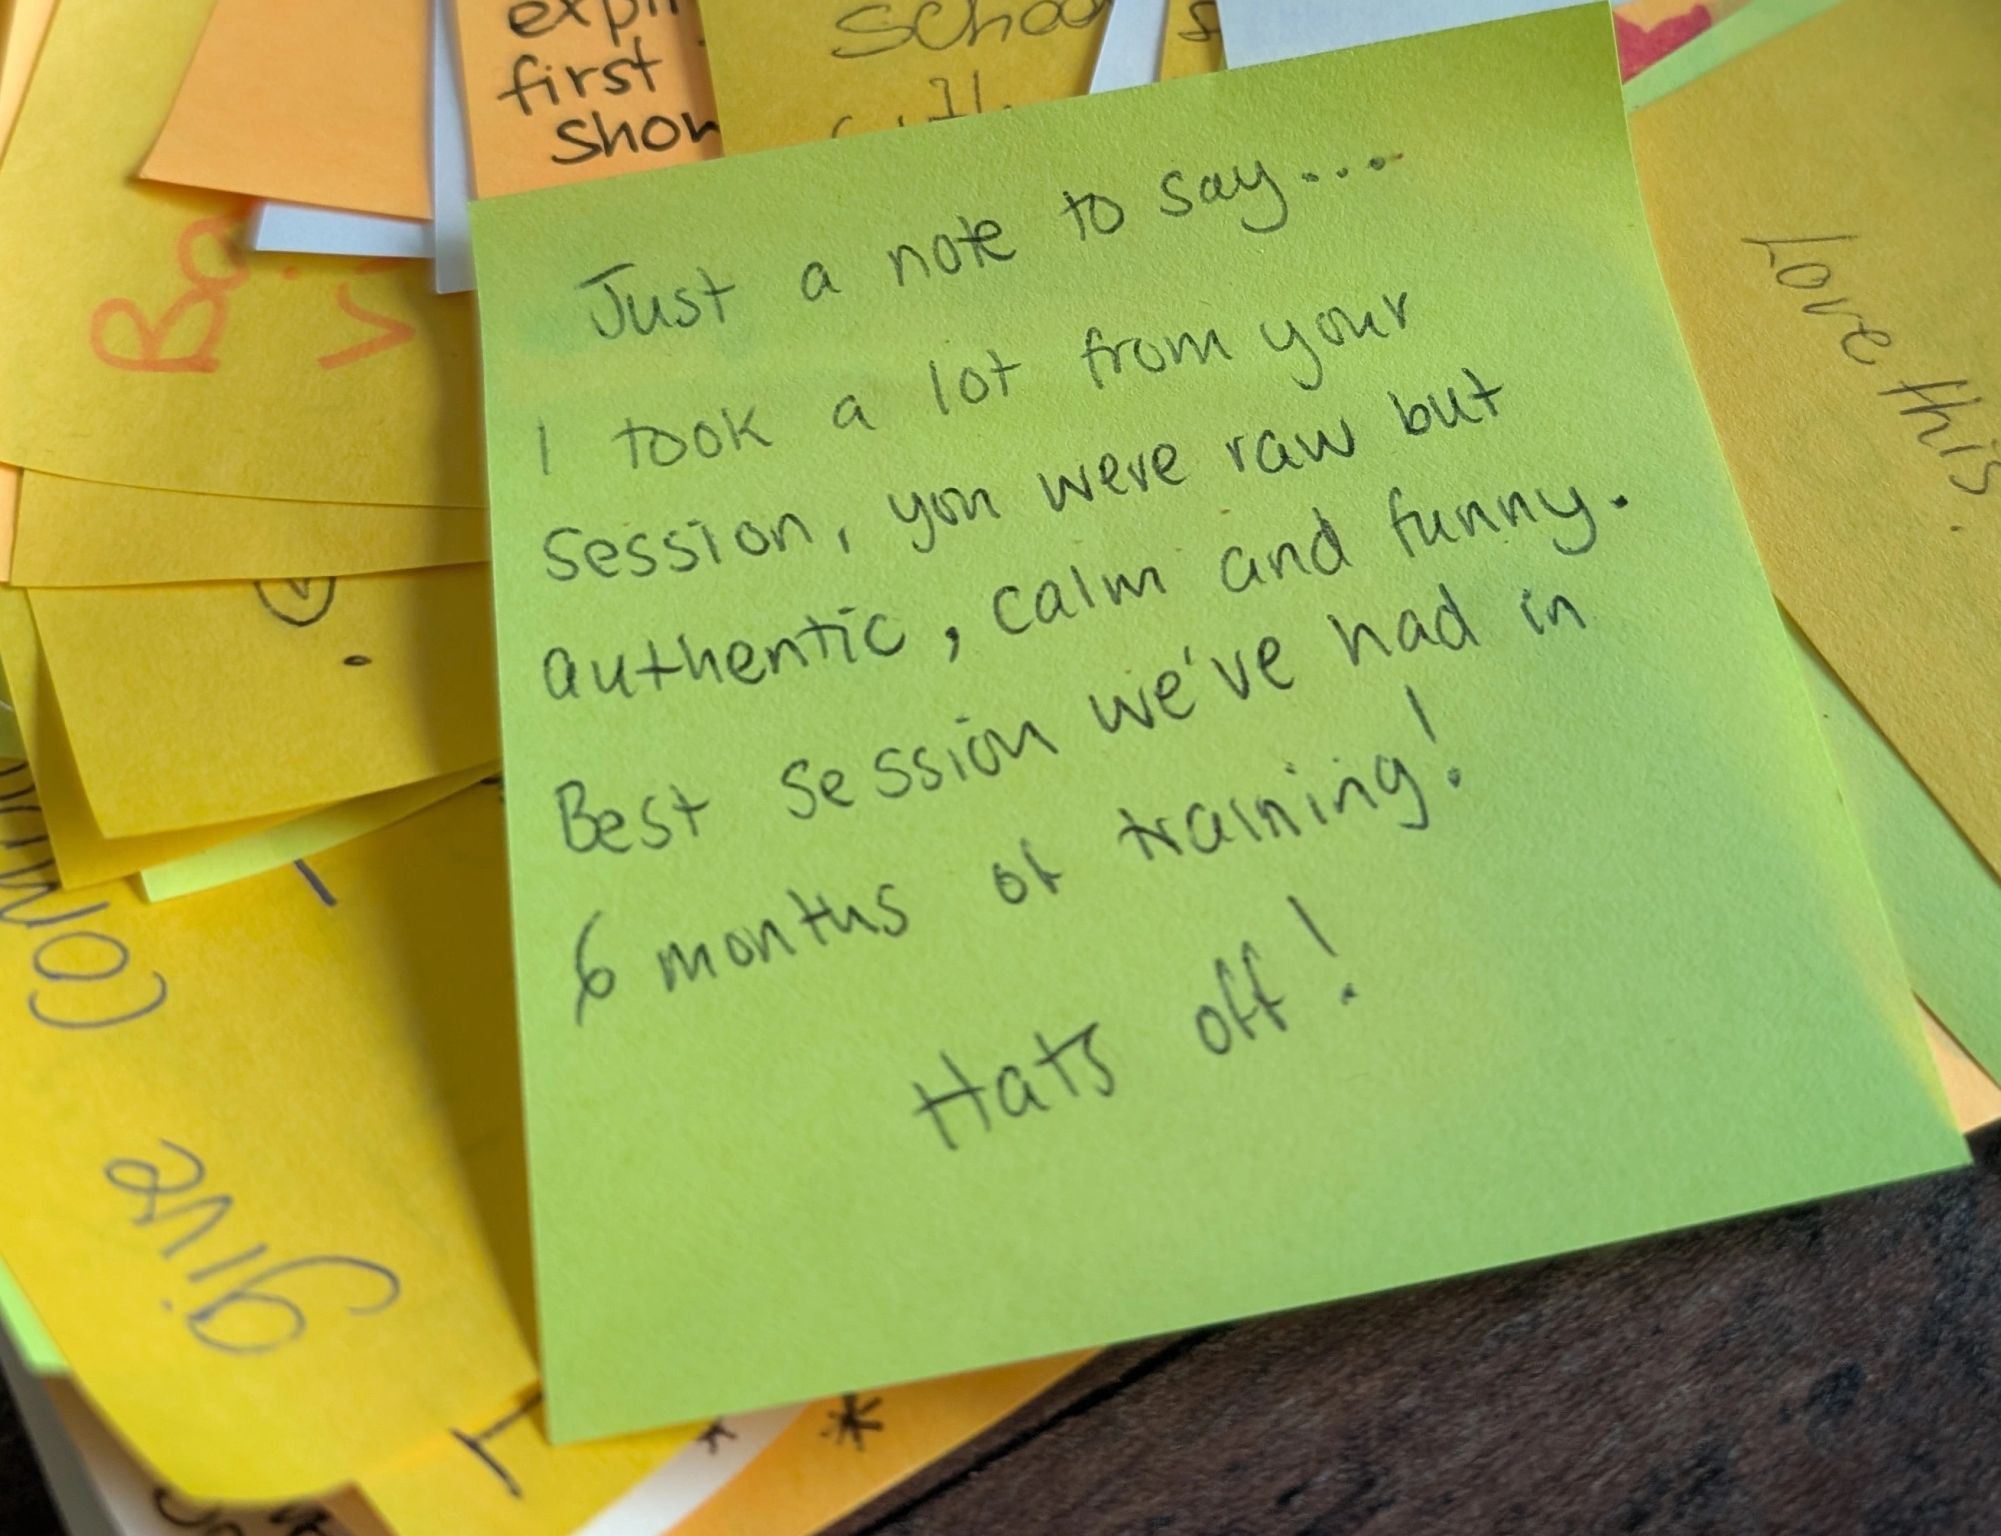 first
School
Just a note to say....
I took a lot from your
session, you were raw but
authentic, calm and funny.
Best session we've had in
6 months of training!
Hats off!
Love this.
give